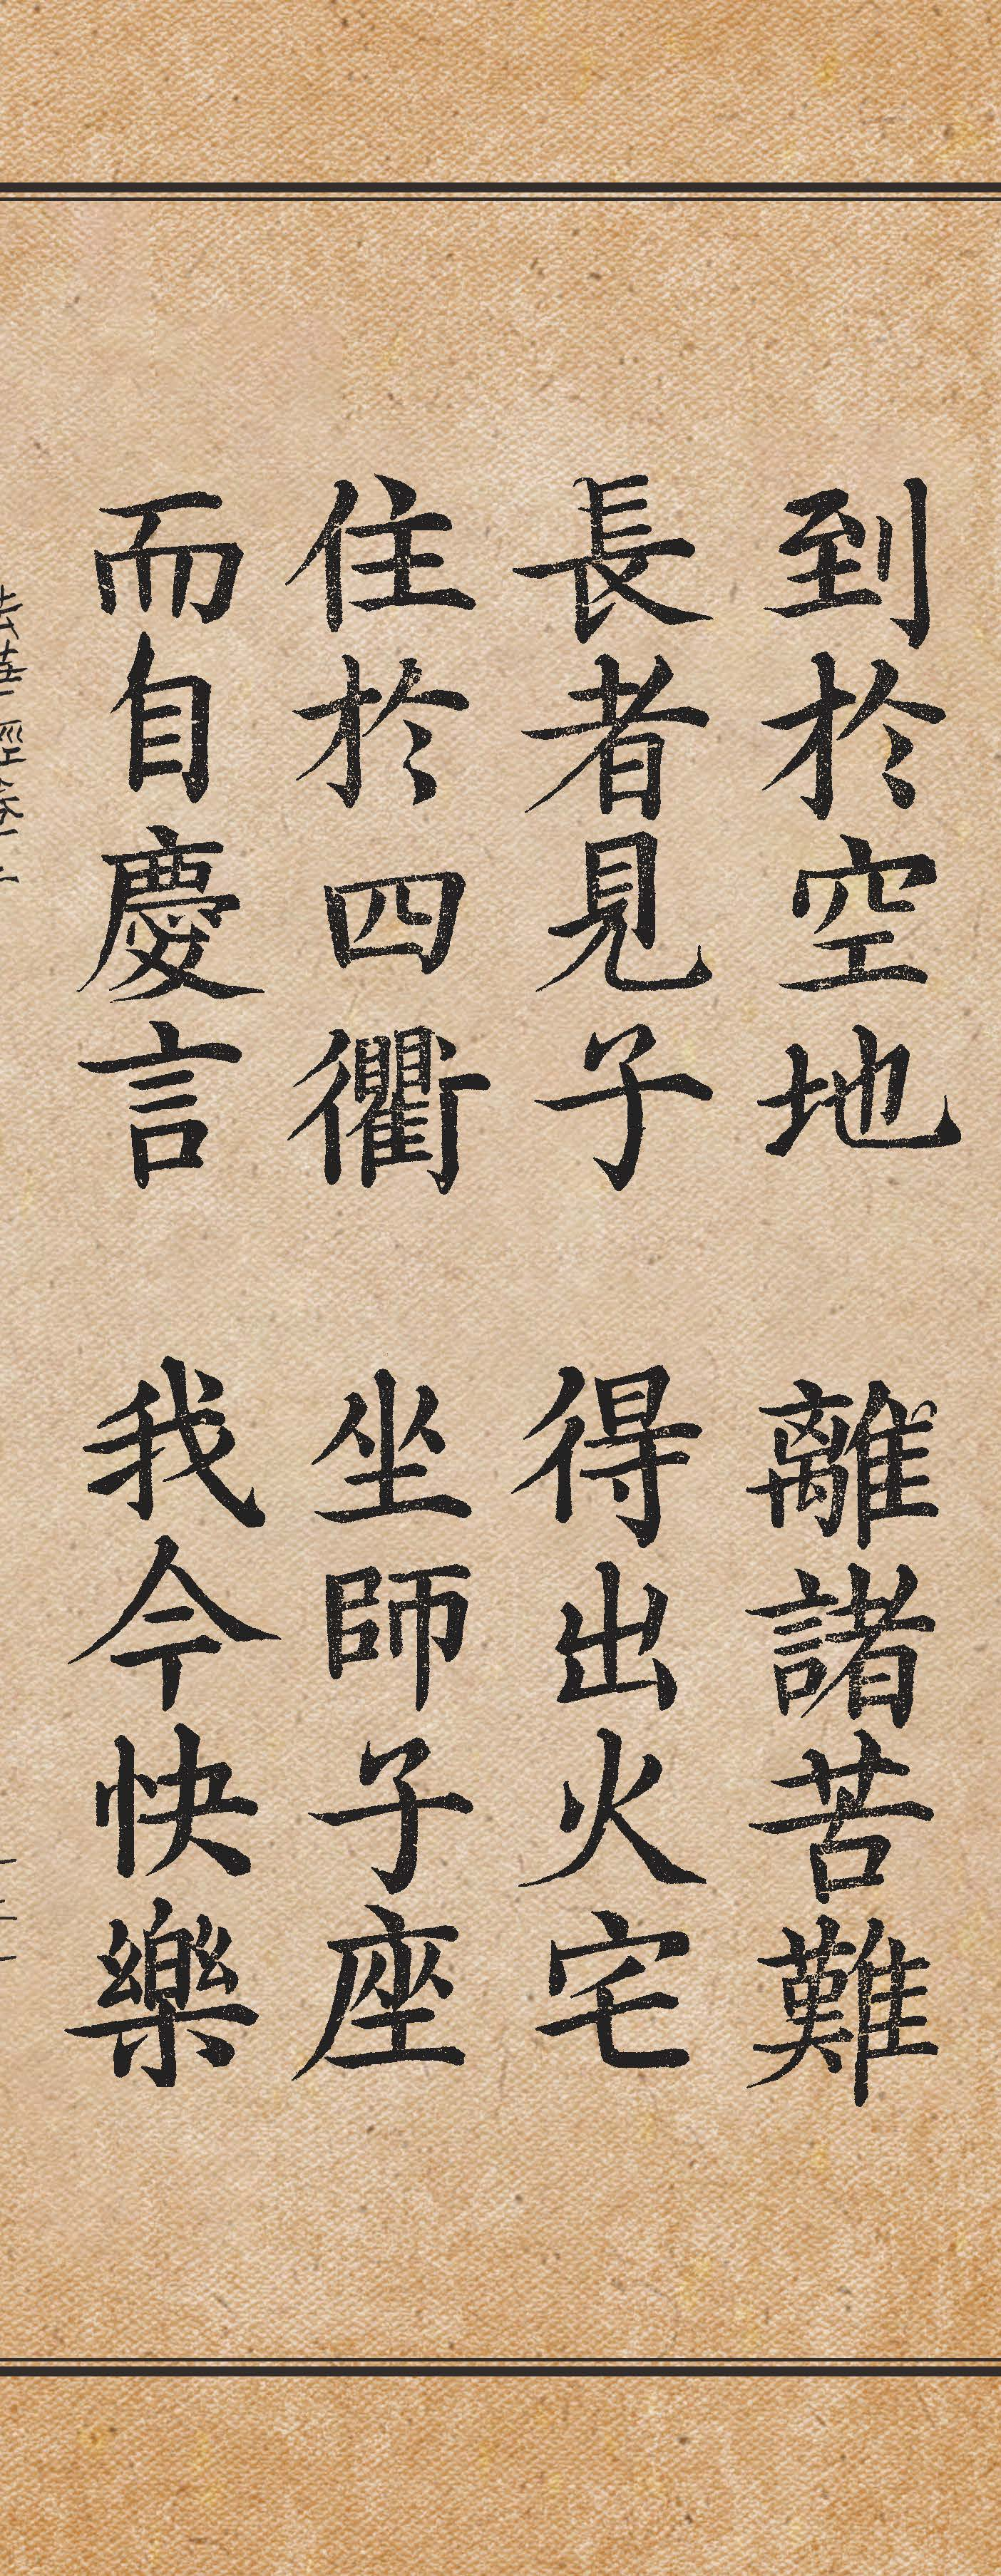 到於空地 離諸苦難
長者見子 得出火宅
住於四衢 坐師子座
而自慶言 我今快樂